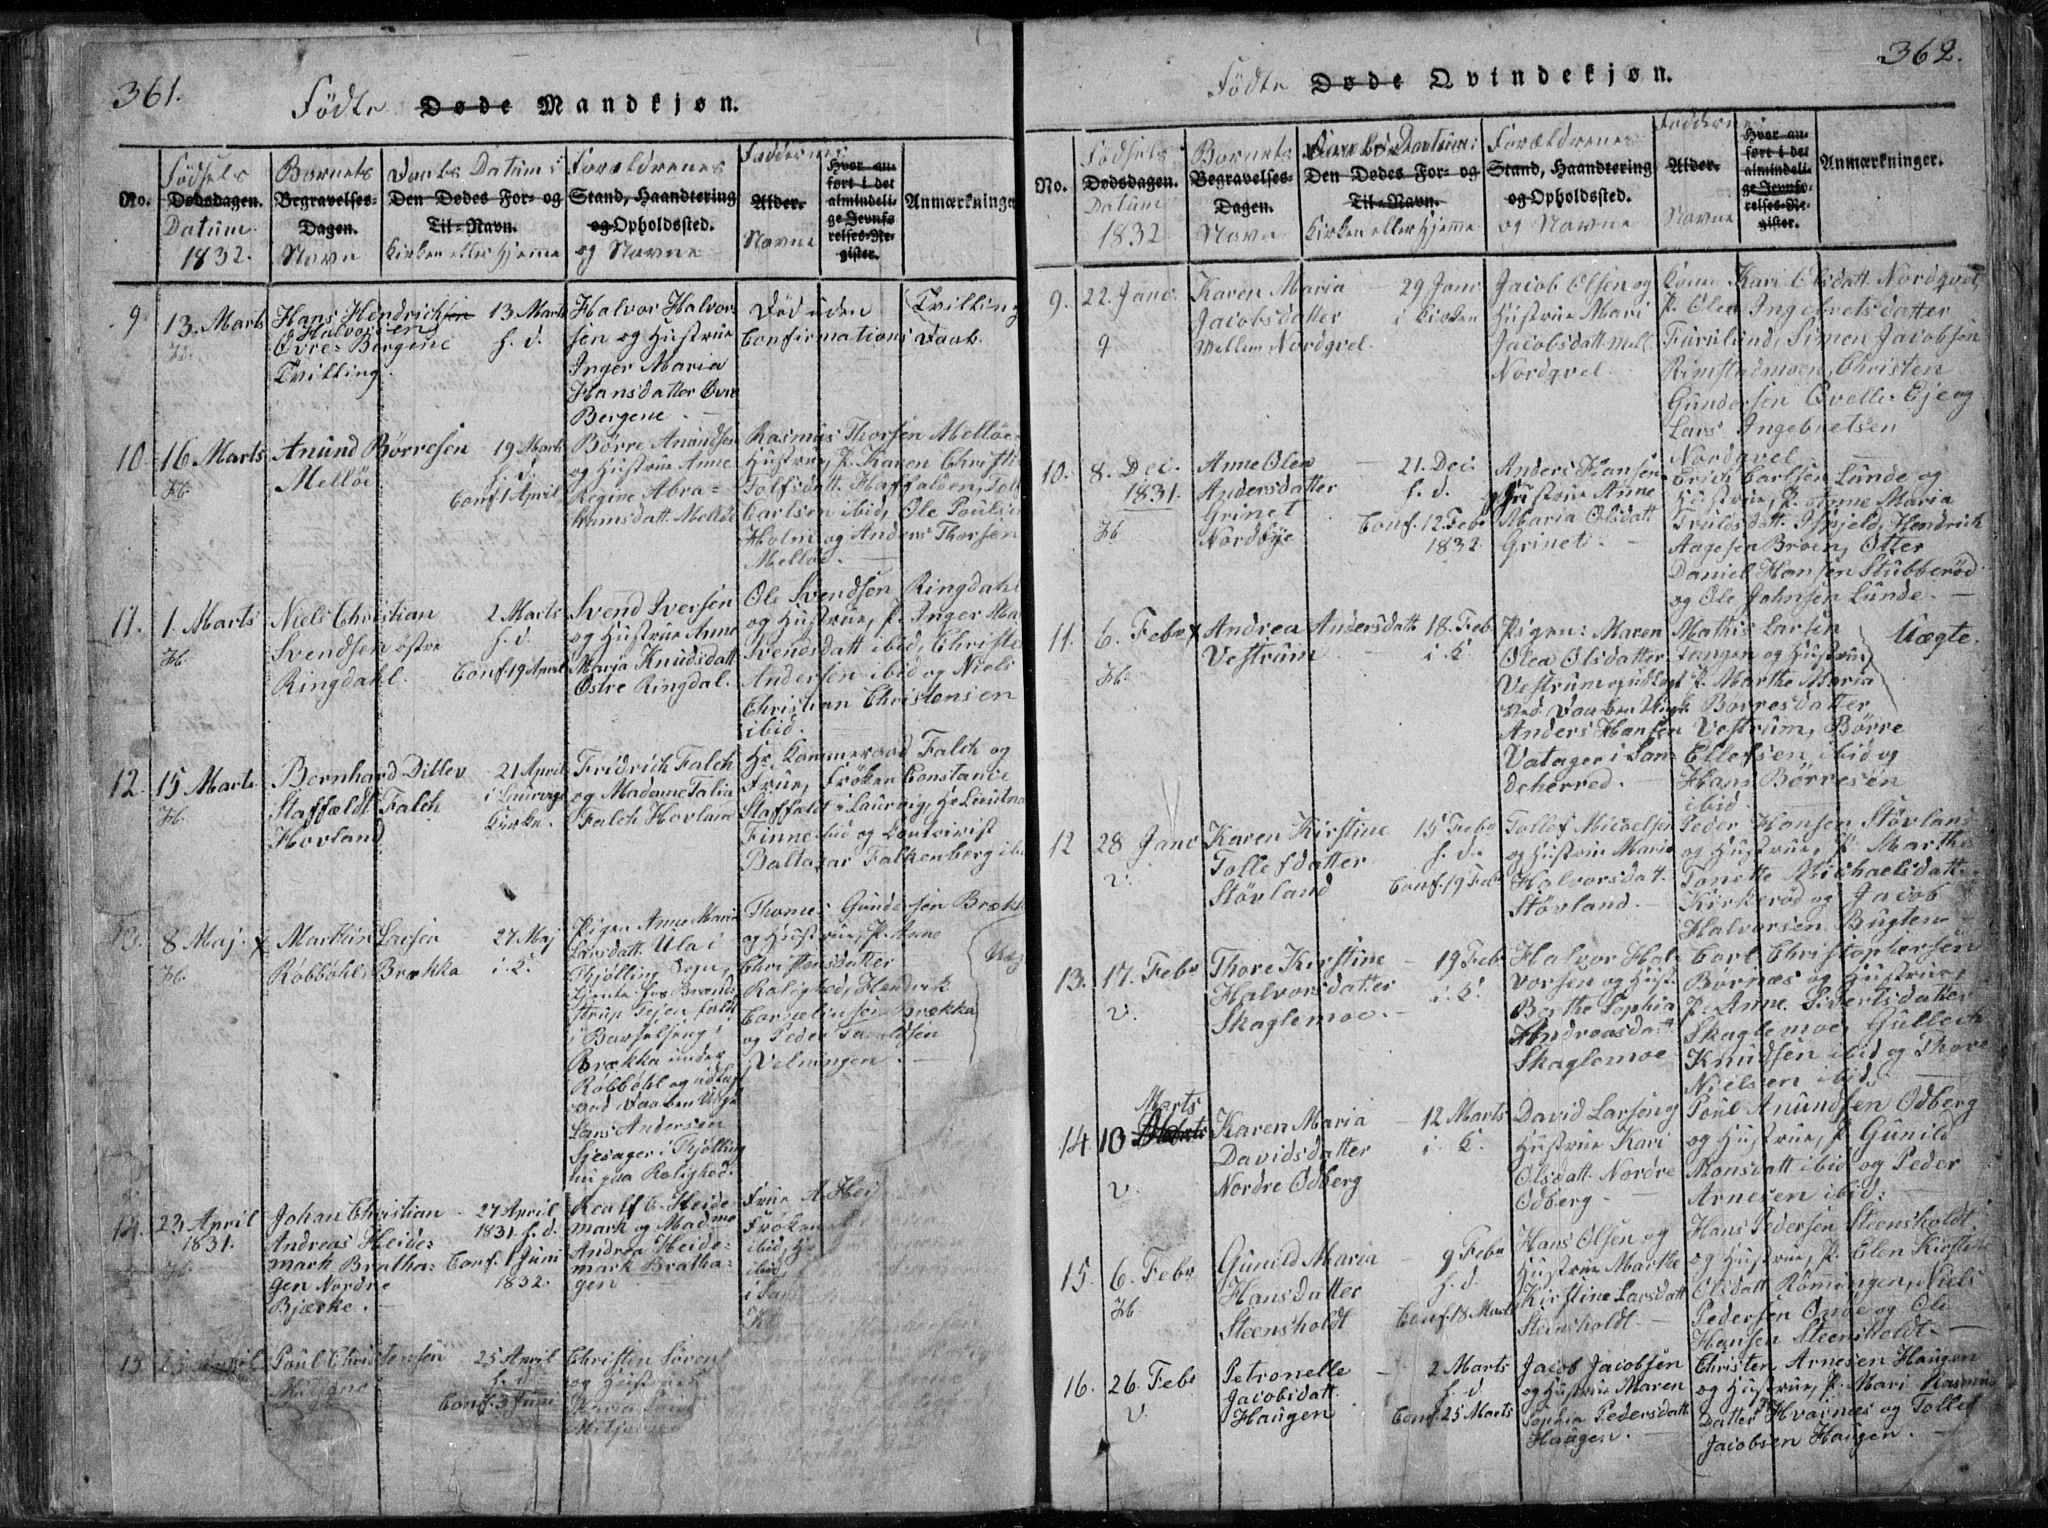 361.
Födte Døde Mandkjøn.
No.
Födsels Dødsdagen. Datum 1832.
Barnets Begravelses-Dagen. Navn
Daabs Datum: Den Dødes For- og Til-Navn. Kirken eller Hjemme
Forældrenes Stand, Haandtering og Opholdssted. og Navne
Faddernes Alder. Navne
Hvor anført i det almindelige Jevnførelses-Register.
Anmærkninger
9. 13. Marts
Hans Hendrich
Halvorsen
Övre Bergene
Tvilling.
13 Marts
h. d.
Halvor Halvor
sen og Hustrue
Inger Maria
Hansdatter Övre
Bergene. —
Död uden
Confirmations Daab.
Tvilling
10. 16 Marts
Anund Börresen
Mellöe
19 Marts
h. d.
Conf. 1 April
Börre Anundsen
og Hustrue Anne
Regine Abra=
hamsdatt. Mellöe
Rasmus Thorsen Mellöe
Hustrue, P. Karen Christi
Tolfsdatt. Haffalden, Tol
Carlsen ibid, Ole Poulsen
Holm og Anders Thorsen
Mellöe. —
11. 1. Marts
Niels Christian
Svendsen östre
Ringdahl.
2 Marts
h. d.
Conf. 19 April
Svend Iversen
og Hustrue Anne
Maria Knudsdatt
Östre Ringdal.
Ole Svendsen Ringdahl
og Hustrue, P. Inger Ma
Svendsdatt ibid, Christe
Andersen ibid og Niels
Christian Christensen
ibid. —
12. 15 Marts
Bernhard Ditlev
Staffeldt Falch
Hovland
21 April
i Laurvigs
Kirke.
Fridrich Falch
og Madame Talia
Falch Hovland
Hr. Kammeraad Falch og
Frue, Fröken Constance
Staffeldt i Laurvig, Hr Lieutna
Finne ibid og
Baltazar Falkenberg ibi
13. 8 Maj.
Martin Larsen
Röbböhls Brækka
27 Maj
i K.
Pigen Anne Maria
Larsdatt. Ula i
Thjölling Sogn,
tjente hos
i Barselseng i
Brækka under
Röbböhl og udlagt
ved Daaben Unge
Lars Andersen
i Thjölling
nu paa Rolighed.
Thomes Gundersen Bræk
og Hustrue, P. Anne
Christensdatter
Rolighed, Hendrik
Corneliusen Brækka
og Peder
Velningen. —
14. 23 April
1831.
Johan Christian
Andreas Heide=
mark Bratha=
gen Nordre
Bjerke. —
27 April
1831. h. d.
Conf. 1 Juni
1832.
C. Heide=
mark og Madme
Andrea Heide=
mark Bratha=
gen
Frue A. Hei
Fröken
ibid, H
ibid,
15
Poul Christensen
25 April
h. d.
Conf. 3 Juni
Christen Sören
og Hustrue
Maria

362.
Födte Døde Qvindekjøn.
No.
Födsels Dødsdagen. Datum 1832
Barnets Begravelses-Dagen. Navn
Daabs Datum: Den Dødes For- og Til-Navn. Kirken eller Hjemme
Forældrenes Stand, Haandtering og Opholdssted. og Navne
Faddernes Alder. Navne
Hvor anført i det almindelige Jevnførelses-Register.
Anmærkninger.
9. 22. Janv.
9
Karen Maria
Jacobsdatter
Mellem Nordqvel.
29 Janv
i Kirken
Jacob Olsen og
Hustrue Mari
Jacobsdatt Mell.
Nordqvel.
Kone Kari Olsdatt Nordqvel,
P. Olea Ingebretsdatter
Furulund, Simen Jacobsen
Rimstadmoen, Christen
Gundersen Qvelle Eje og
Lars Ingebretsen
Nordqvel —
10. 8. Dec.
1831.
Anne Olea
Andersdatter
Grinet
Nordbye
21. Dec.
h. d.
Conf. 12 Feb
1832
Anders Hansen
Hustrue Anne
Maria Olsdatt
Grinet. —
Erich Carlsen Lunde og
Hustrue, P. Anne Maria
Trulsdatt. Hendrich
Aagesen Broen, Otter
Daniel Hansen Stubberöd
og Ole Johnsen Lunde. —
11. 6. Febr
Andrea Andersdatt
Vestrum —
18. Feb
i K.
Pigen: Maren
Olea Olsdatter
Vestrum og udlagt
ved Daaben Ungk
Anders Hansen
Vatager i San=
deherred.
Mathis Larsen
Tangen og Hustrue,
P. Marthe Maria
Borresdatter
Vestrum, Börre
Ellefsen ibid og
Hans Börresen
ibid
Uægte.
12 28 Janv
v.
Karen Kirstine
Tollefsdatter
Stövland
15 Febr
h. d.
Conf. 19 Febr
Tollef Micaelsen
og Hustrue Maria
Halvorsdatt.
Stövland. —
Peder Hansen Stövland
og Hustrue, P. Marthe
Tonette Michaelsdatt.
Kirkeröd og Jacob
Halvorsen Bugten —
13. 17. Febr
v.
Thore Kirstine
Halvorsdatter
Skaglemoe. —
19 Febr
i K.
Halvor Hal
vorsen og Hust.
Berthe Sophia
Andreasdatt
Skaglemoe
Carl Christophersen
Börnæs og Hustrue,
P. Anne Sivertsdatter
Skaglemoe, Gullech
Knudsen ibid og Thore
Nielsen ibid.
14. 10 Marts
v.
Karen Maria
Davidsdatter
Nordre Odberg
12 Marts
i. K.
David Larsen og
Hustrue Kari
Olsdatt. Nordre
Odberg —
Poul Anundsen Odberg
og Hustrue, P. Gunild
Monsdatt ibid og Peder
Arnesen ibid: —
15. 6. Febr
Gunild Maria
Hansdatter
Steensholdt
9 Febr
h. d.
Conf. 18 Marts
Hans Olsen og
Hustrue Marthe
Kirstine Larsdatt
Steensholdt. —
Hans Pedersen Steensholdt
og Hustrue, P. Elen Kirstine
Olsdatt Römmingen, Niels
Pedersen Onde og Ole
Hansen Steensholdt. —
16. 26. Febr
v.
Petronelle
Jacobsdatt.
Haugen
2 Marts
h. d.
Conf. 25 Marts
Jacob Jacobsen
og Hustrue Maren
Sophia Pedersdatt
Haugen. —
Christen Arnesen Haugen
og Hustrue, P. Mari Rasmus
Datter Hvarnes og Tollef
Jacobsen Haugen. —